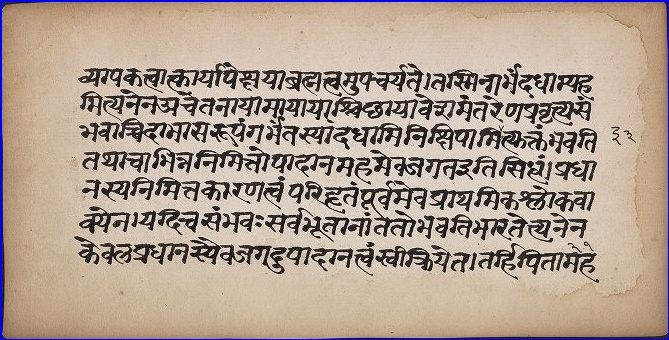 व्यापकत्वात्कार्यापेक्षयाब्रह्मत्वमुपचर्यते।तस्मिनगर्भंदधाम्यह
मित्यनेनअचेतनायामायायाश्चिच्छायावेशमंतरेणप्रवृत्त्यसं
भवाच्चिदाभासरूपंगर्भंतस्यादधामिनिक्षिपामीत्युक्तंभवति
तथाचाभिन्ननिमित्तोपादानमहमेवजगतइतिसिद्धं।प्रधा
नस्यनिमित्तकारणत्वंपरिहृतंपूर्वमेवप्राथमिकश्लोकवा
क्येन।यदिचसंभवःसर्वभूतानांततोभवतिभारतेत्यनेन
केवलप्रधानस्यैवजगदुपादानत्वंस्वीक्रियेत।तर्हिपितामह